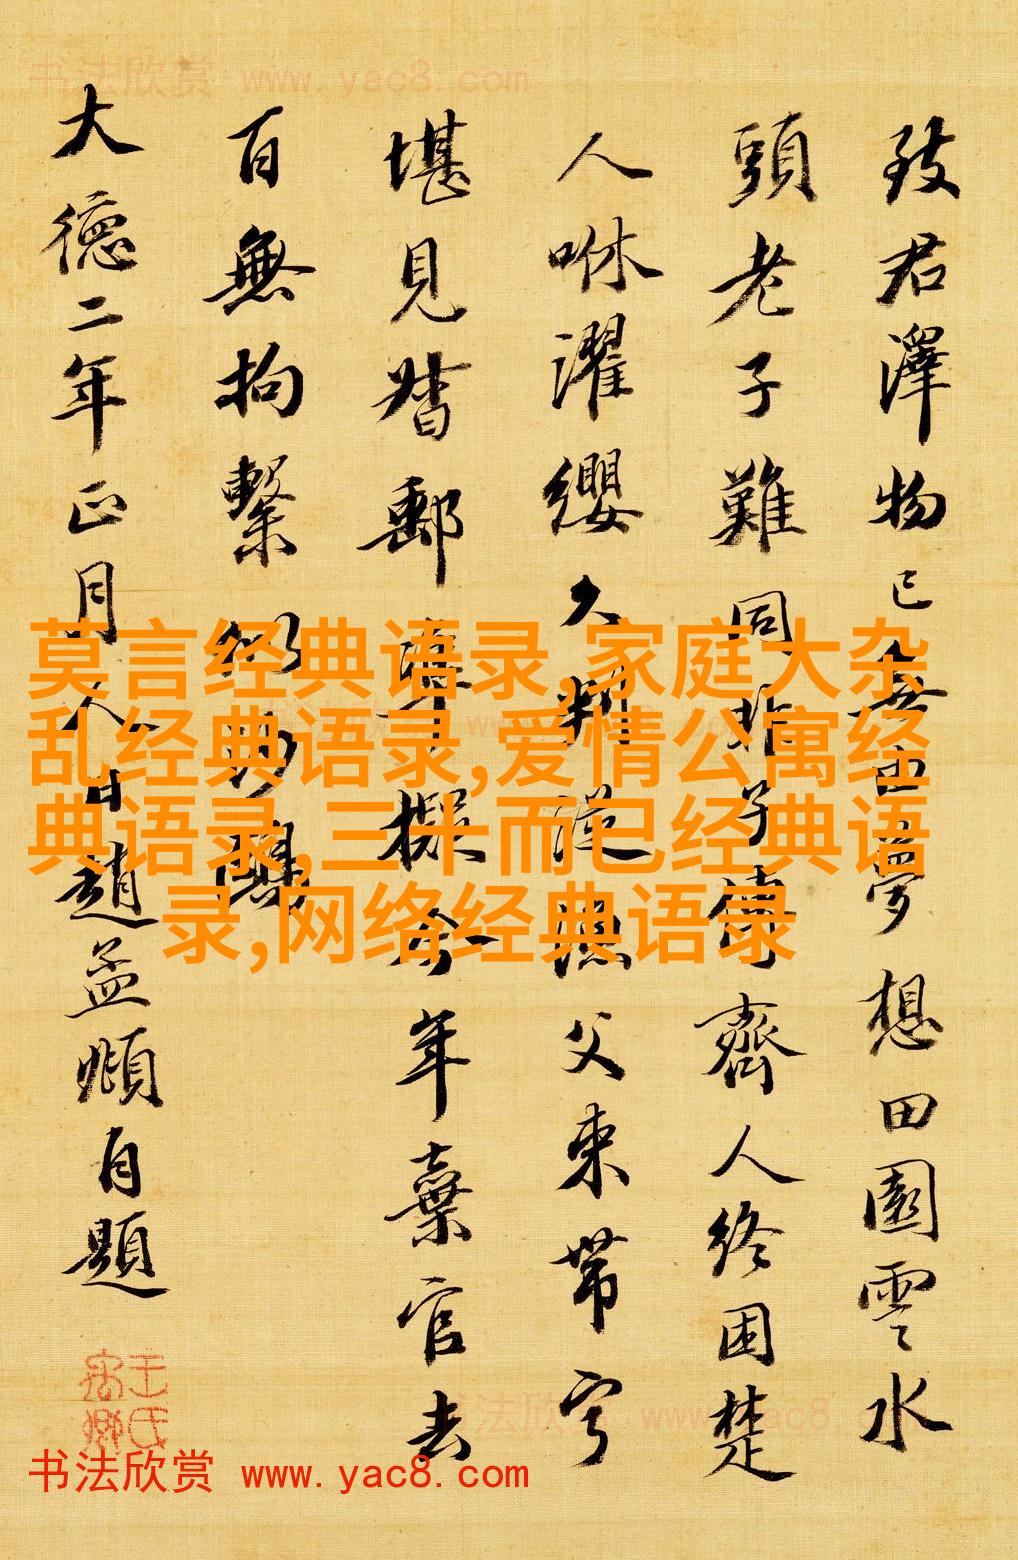 书法欣赏 www.yac8.com
致君澤物已無由夢想田園雲水
頭老子難同非子傳齊人終困楚
人咻濯纓久判從漁父束帶寧
堪見督郵準擬今年棄官去
百無拘繫似沙鷗
大德二年正月人日趙孟頫自題
莫言经典语录,家庭大杂
乱经典语录,爱情公寓经
典语录,三十而已经典语
录,网络经典语录
书法欣赏 www.yac8.com